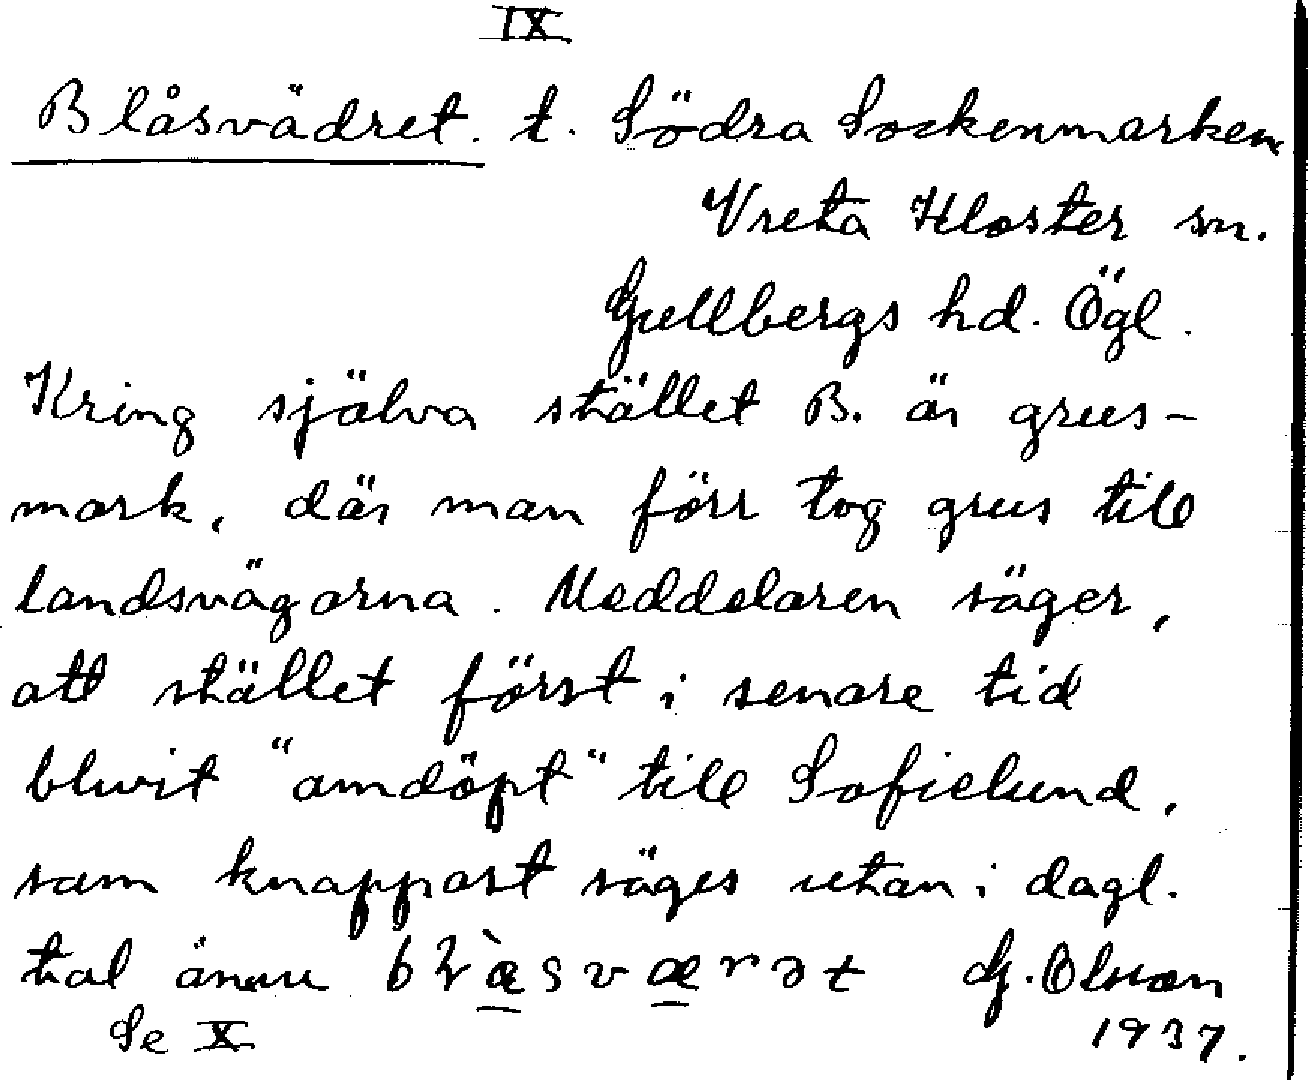 IX
Blåsvädret. t. Södra Sockenmarken
Vreta Kloster sn.
Gullbergs hd. Ögl.
Kring själva stället B. är grus-
mark, där man förr tog grus till
landsvägarna. Meddelaren säger,
att stället först i senare tid
blivit "omdöpt" till Sofielund,
som knappast säges utan i dagl.
tal ännu G. Olsson
Se X 1937.